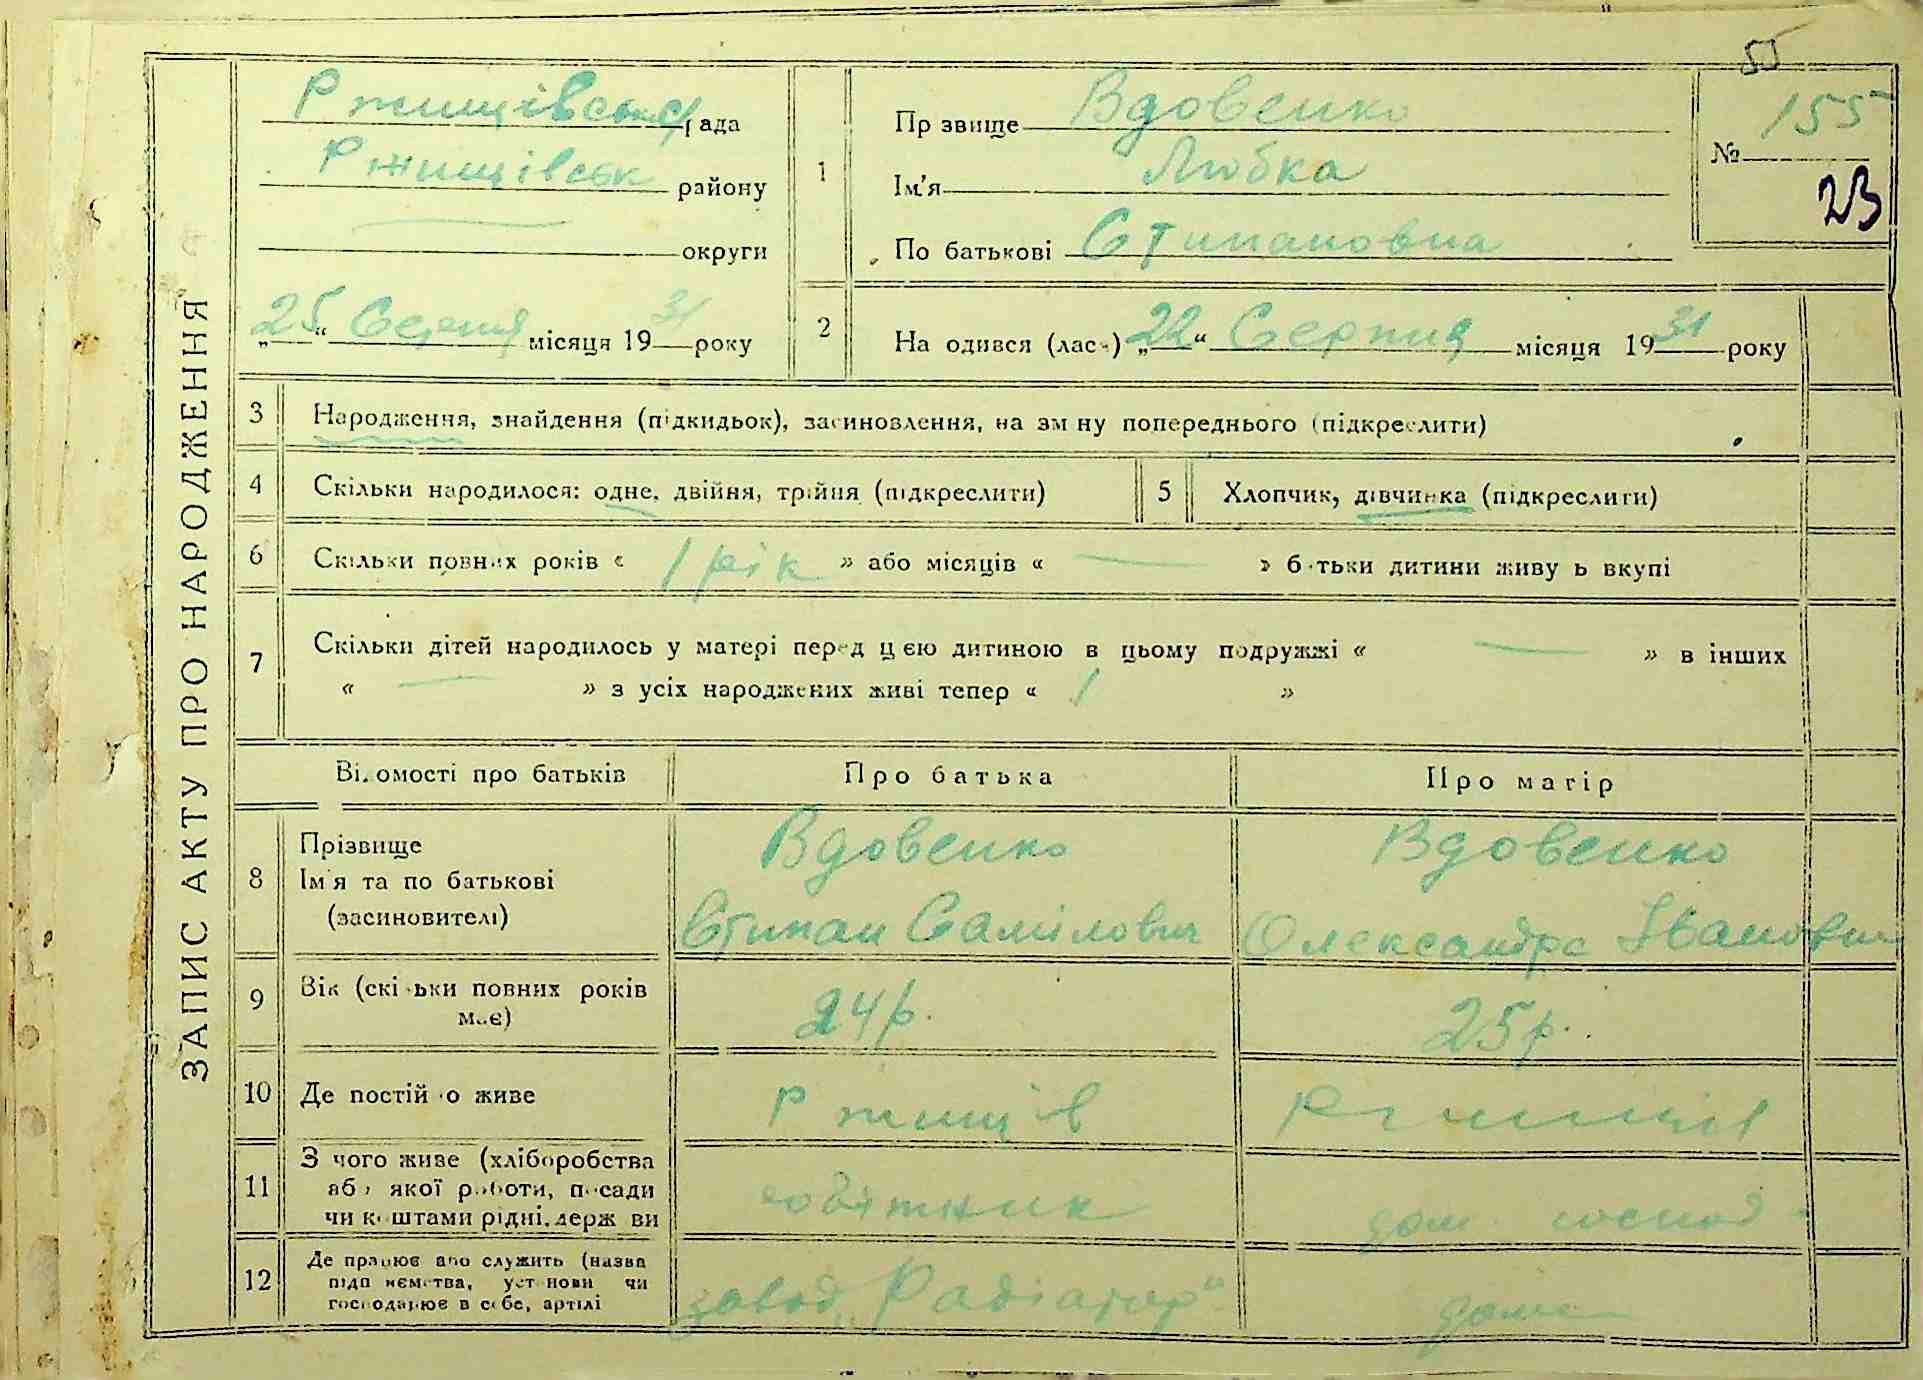 55
ЗАПИС АКТУ ПРО НАРОДЖЕННЯ
Ржищівська рада
Ржищівськ району
округи
„25“ Серпня місяця 1931 року
1
Прзвище Вдовенко
Ім'я Любка
По батькові Стипановна
№ 155
23
2
На одився (лась) „22“ Серпня місяця 1931 року
3 Народження, знайдення (підкидьок), засиновлення, на зм ну попереднього (підкреслити)
4 Скільки народилося: одне, двійня, трійня (підкреслити)
5 Хлопчик, дівчинка (підкреслити)
6 Скільки повних років « 1 рік » або місяців « — » батьки дитини живу ь вкупі
7 Скільки дітей народилось у матері перед цією дитиною в цьому подружжі « — » в інших
« — » з усіх народжених живі тепер « 1 »
Відомості про батьків Про батька Про матір
8 Прізвище
Ім'я та по батькові
(засиновителі)
Вдовенко
Стипан Самілович
Вдовенко
Олександра Івановна
9 Вік (скільки повних років
має)
24 р.
25 р.
10 Де постійно живе
Ржищів
Ржищів
11 З чого живе (хліборобства
або якої роботи, посади
чи коштами рідні, держ ви
дом. господ
12 Де працює або служить (назва
підп иємства, установи чи
господарює в себе, артілі
завод „Радіатор“
дома